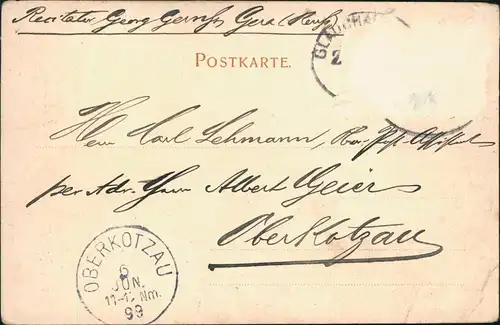 Recitator Georg Gerns, Gera (Reuß)
POSTKARTE.
GLAUCHAU
2
Herrn Carl Lehmann,
per Adr. Herrn Albert Geier
Oberkotzau
OBERKOTZAU
6
JUN.
11-12 Nm.
99